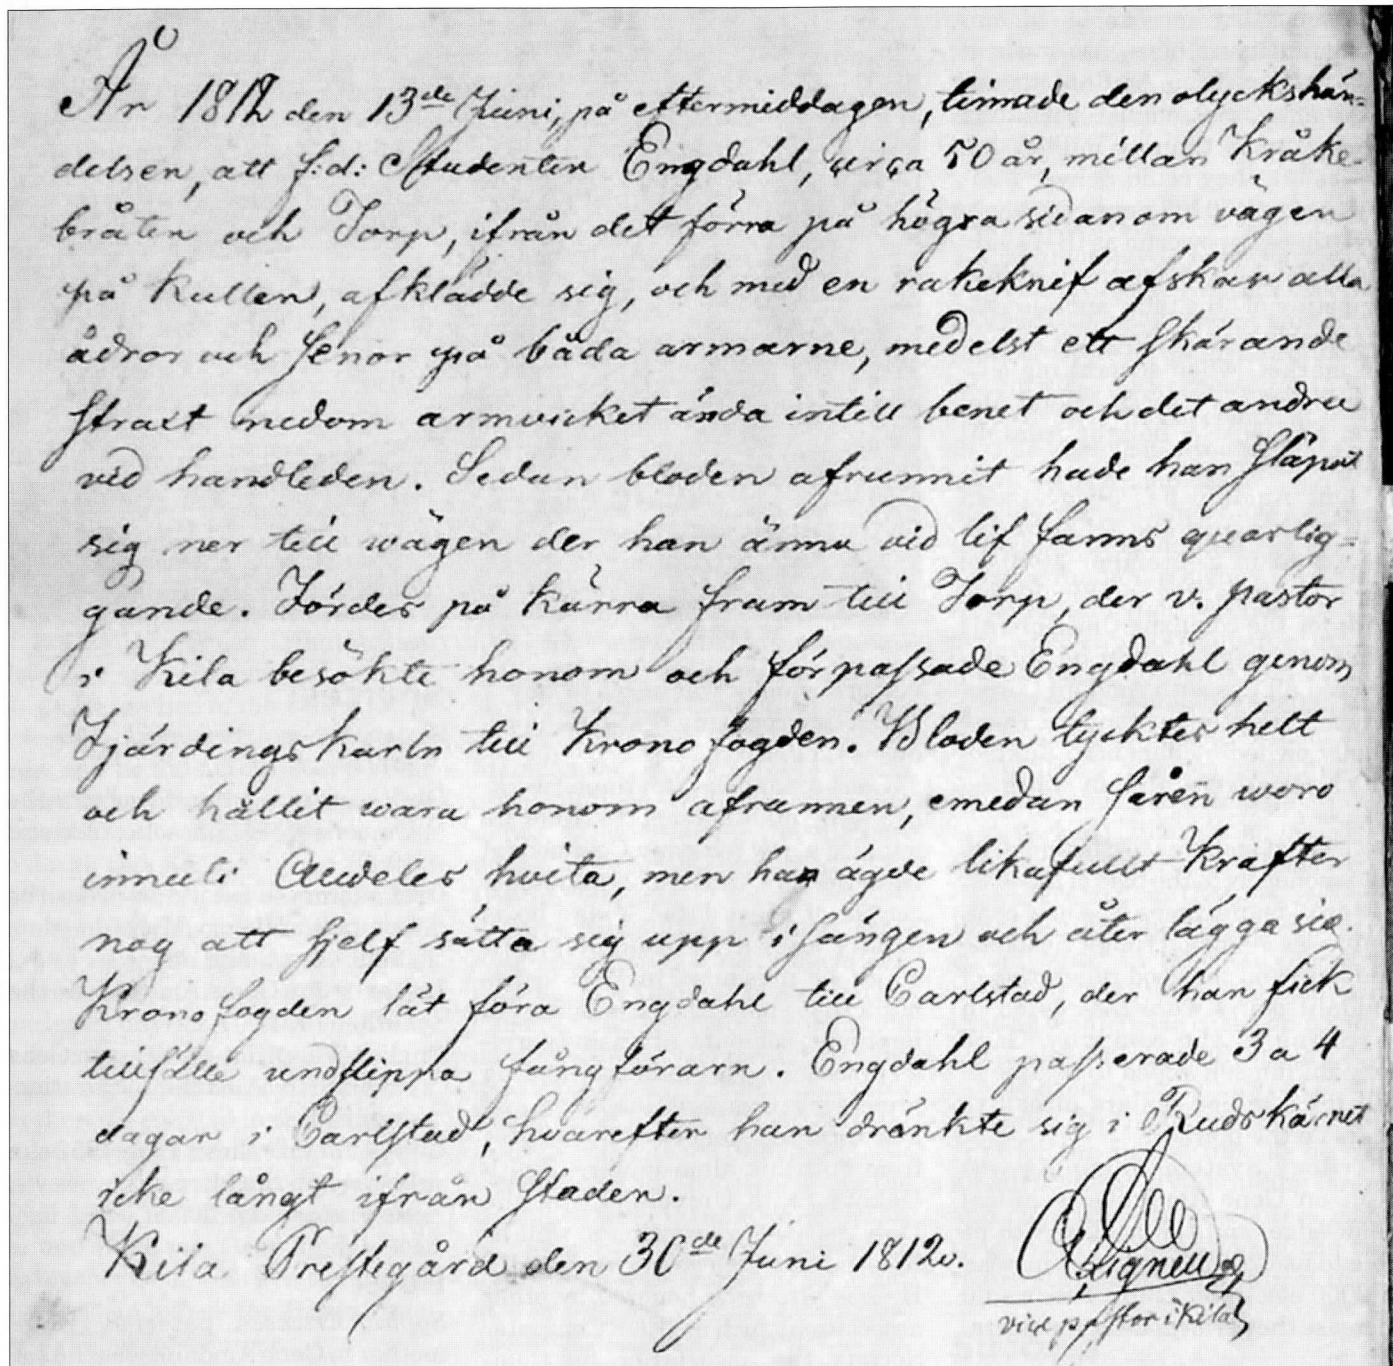 År 1812 den 13de Juni, på eftermiddagen, timade den olyckshän=
delsen, att f:d: Studenten Engdahl, circa 50 år, mellan Kråke-
bråten och Torp, ifrån det förra på högra sidan om vägen
på Kullen, afklädde sig, och med en rakeknif afskar alla
ådror och senor på båda armarne, medelst ett skärande
straxt nedom armvecket ända intill benet och det andra
vid handleden. Sedan bloden afrunnit hade han släpat
sig ner till wägen der han ännu vid lif fanns quarlig=
gande. Fördes på kärra fram till Torp, der v. pastor
i Kila besökte honom och förpassade Engdahl genom
Fjärdingskarln till Kronofogden. Bloden tycktes helt
och hållit wara honom afrunnen, emedan såren woro
inuti Aldeles hvita, men han ägde likafullt Krafter
nog att sjelf sätta sig upp i sängen och åter lägga sig.
Kronofogden lät föra Engdahl till Carlstad, der han fick
tillfälle undslippa fångförarn. Engdahl passerade 3 a 4
dagar i Carlstad, hvarefter han dränkte sig i Rudskärnet
icke långt ifrån staden.
Kila Prestegård den 30de Juni 1812.
vice pastor i Kila